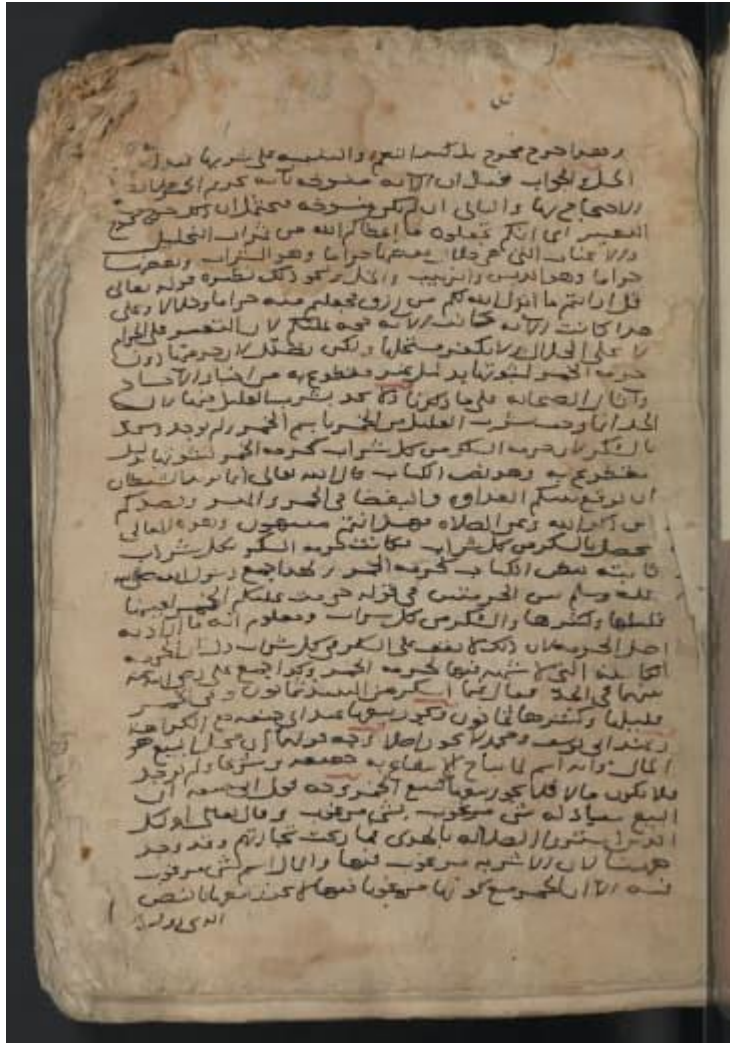 وهذا خرج مخرج تذكير النعم والتنبيه على شكرها فيدل
الحل والجواب قيل ان الآية منسوخة بآية تحريم الخمر
الاحتجاج بها والثاني ان لم تكن منسوخة فيحتمل ان ذلك خرج مخرج
التغيير اي انكم تجعلون ما اعطاكم الله من ثمرات النخيل
والاعناب التي بعضها حراما وهو الشراب وبعضها
حراما وهو الدبس والزبيب والخل ونحو ذلك نظيره قوله تعالى
قل ارايتم ما انزل الله لكم من رزق فجعلتم منه حراما وحلالا وعلى
هذا كانت الآية حجة عليكم لان التغيير على الحرام
لا على الحلال ولا يكفر مستحلها ولكن يضلل لان حرمتها دون
حرمة الخمر لثبوتها بدليل غير مقطوع به من اخبار الآحاد
وآثار الصحابة على ما ذكرنا ولا يحد بشرب القليل منها لان
الحد انما وجب بشرب القليل من الخمر باسم الخمر ولم يوجد ويحد
بالسكر لان حرمة السكر من كل شراب كحرمة الخمر لثبوتها بدليل
مقطوع به وهو نص الكتاب قال الله تعالى انما يريد الشيطان
ان يوقع بينكم العداوة والبغضا في الخمر والميسر ويصدكم
عن ذكر الله وعن الصلاة فهل انتم منتهون وهذه المعاني
تحصل بالسكر من كل شراب فكانت حرمة السكر بكل شراب
ثابتة بنص الكتاب كحرمة الخمر ولهذا جمع رسول الله صلى الله
عليه وسلم بين الحرمتين في قوله حرمت عليكم الخمر لعينها
قليلها وكثيرها والسكر من كل شراب ومعلوم انه ما اراد به
اصل الحرمة لان ذلك لا يقف على السكر في كل شراب دل ان الحرمة
الكاملة التي لا شبهة فيها كحرمة الخمر وكذا جمع علي رضي الله عنه
بينهما في الحد فقال فيما اسكر من النبيذ ثمانون وفي الخمر
قليلها وكثيرها ثمانون ويجوز بيعها عند ابي حنيفة مع الكراهة
وعند ابي يوسف ومحمد لا يجوز اصلا وجه قولهما ان محل البيع هو
المال وانه اسم لما يباح الانتفاع به حقيقة وشرعا ولم يوجد
فلا تكون مالا فلا يجوز بيعها كبيع الخمر وجه قول ابي حنيفة ان
البيع مبادلة شي مرغوب بشي مرغوب وقال تعالى اولئك
الذين اشتروا الضلالة بالهدى فما ربحت تجارتهم وقد وجد
ههنا لان الاشربة مرغوب فيها والمال اسم لشي مرغوب
فيه الا ان الخمر مع كونها مرغوبا فيها لا يجوز بيعها بالنص
الذي